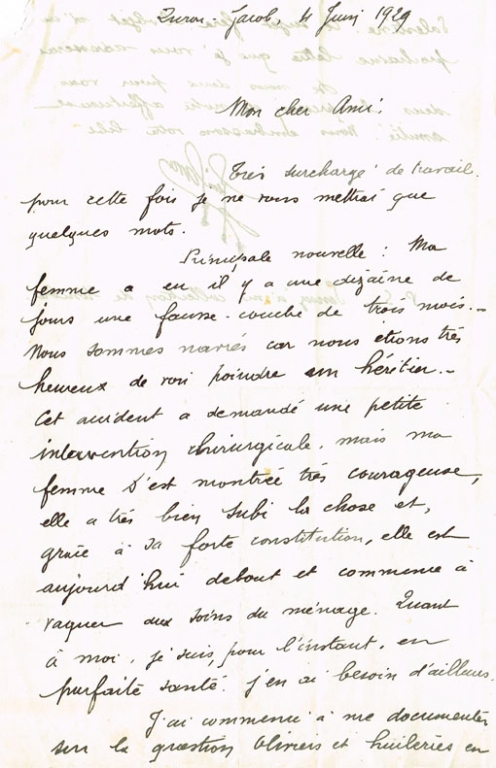 Zuron-Jacob, 4 Juin 1929
Mon cher Ami,
Très surchargé de travail
pour cette fois je ne vous mettrai que
quelques mots.
Principale nouvelle : Ma
femme a eu il y a une dizaine de
jours une fausse-couche de trois mois.-
Nous sommes navrés car nous étions très
heureux de voir poindre un héritier.-
Cet accident a demandé une petite
intervention chirurgicale, mais ma
femme s'est montrée très courageuse,
elle a très bien subi la chose et,
grâce à sa forte constitution, elle est
aujourd'hui debout et commence à
vaquer aux soins du ménage. Quant
à moi, je suis, pour l'instant, en
parfaite santé. j'en ai besoin d'ailleurs.
J'ai commencé à me documenter
sur la question Oliviers et huileries en